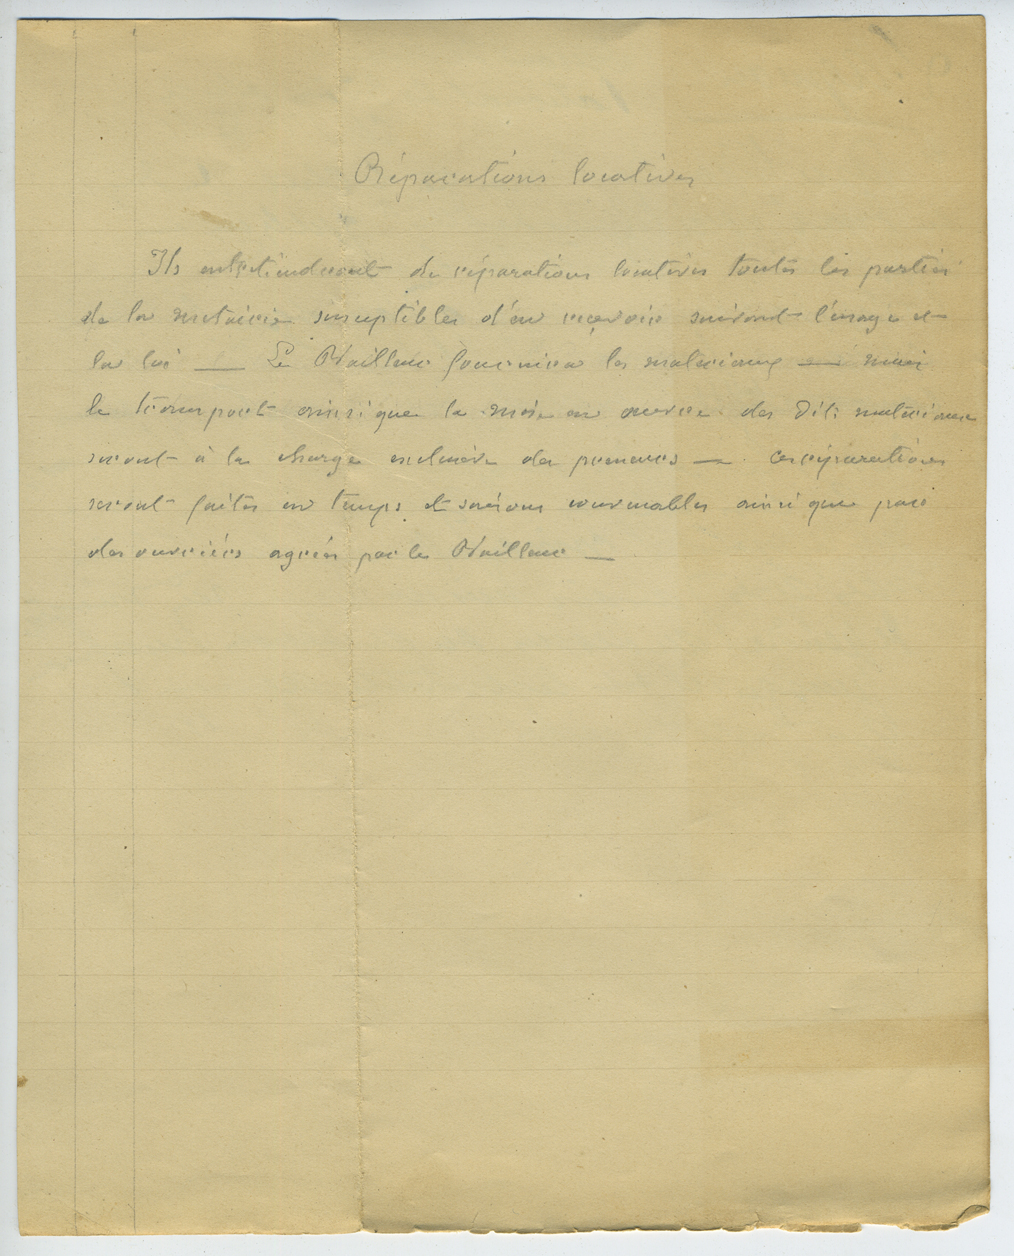 Réparations locatives
Ils entretiendront de réparations locatives toutes les parties
de la métairie susceptibles d'en recevoir suivant l'usage et
la loi — Le Bailleur fournira les matériaux — mais
le transport ainsi que la mise en œuvre des dits matériaux
seront à la charge exclusive des preneurs — ces réparations
seront faites en temps et saisons convenables ainsi que par
des ouvriers agréés par le Bailleur —